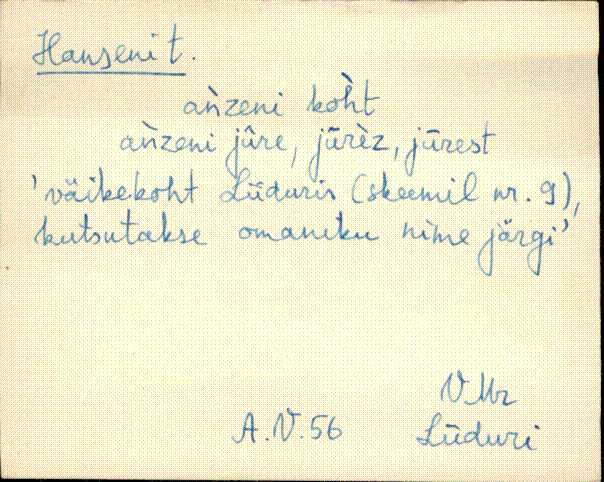 Hanseni t.
aǹzeni koh̀t
aǹzeni jûre, jūrèz, jūrest
'väikekoht Lüduris (skeemil nr. 9),
kutsutakse omaniku nime järgi'
V Mr
A.V. 56 Lüduri